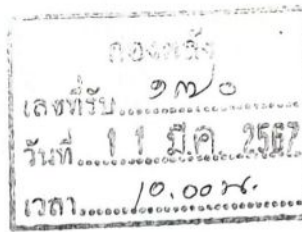 กองคลัง
เลขที่รับ ๑๗๐
วันที่ 11 มี.ค. 2567
เวลา 10.00 น.